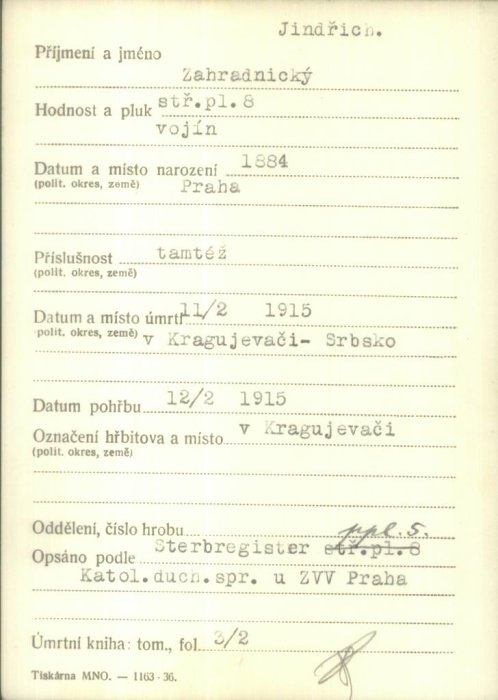 Jindřich.
Příjmení a jméno
Zahradnický
Hodnost a pluk stř.pl.8
vojín
Datum a místo narození 1884
(polit. okres, země) Praha
Příslušnost tamtéž
(polit. okres, země)
Datum a místo úmrtí 11/2 1915
polit. okres, země) v Kragujevači- Srbsko
Datum pohřbu 12/2 1915
Označení hřbitova a místo v Kragujevači
(polit. okres, země)
Oddělení, číslo hrobu ppl. 5.
Opsáno podle Sterbregister stř.pl.8
Katol.duch.spr. u ZVV Praha
Úmrtní kniha: tom., fol. 3/2
Tiskárna MNO. — 1163-36.